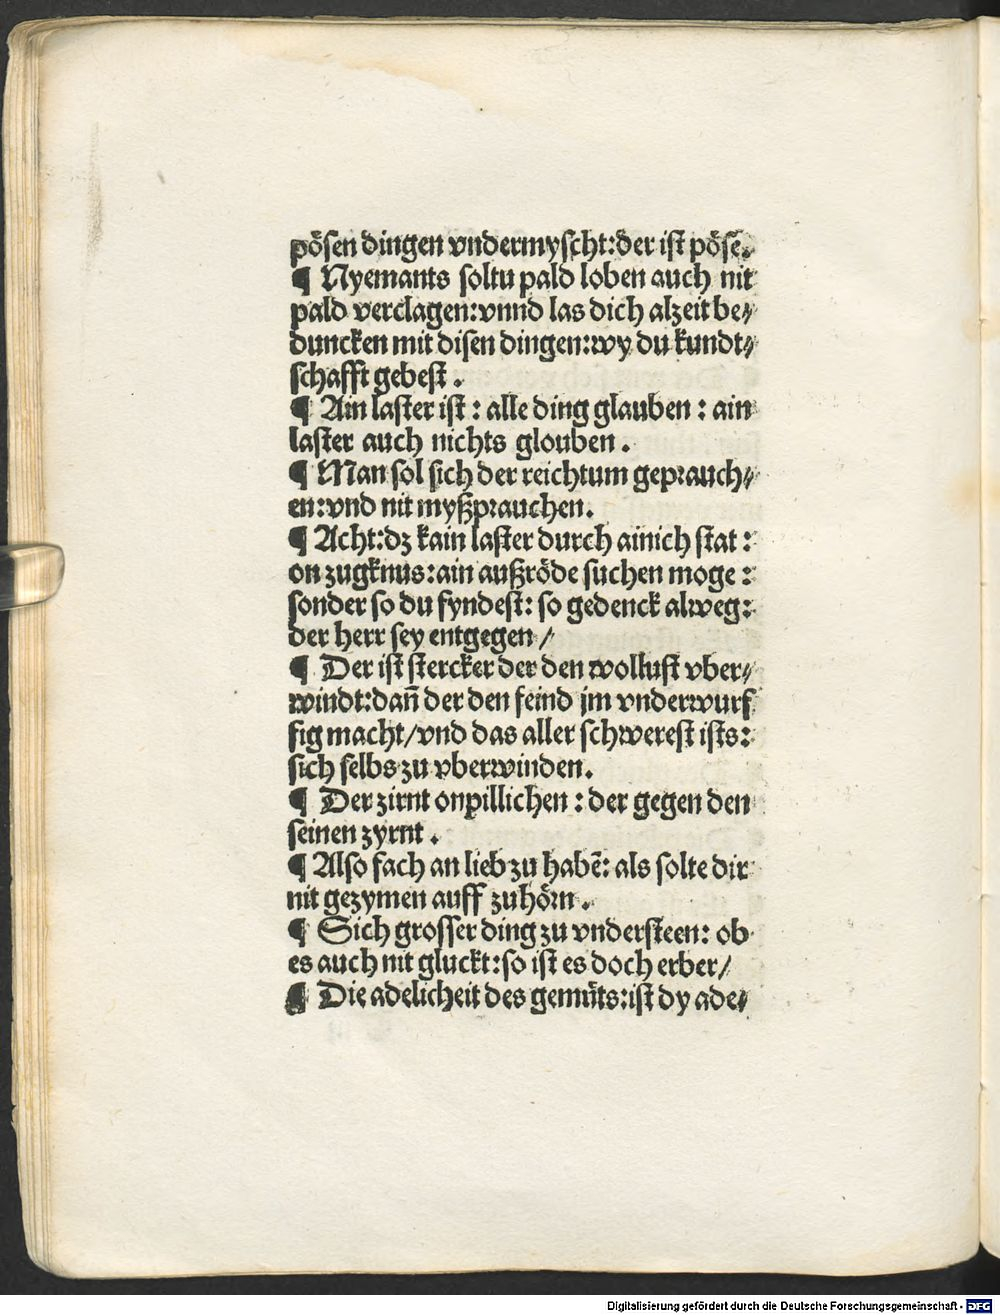 pösen dingen vndermyscht:der ist pöse.
¶ Nyemants soltu pald loben auch nit
pald verclagen:vnnd las dich alzeit be⸗
duncken mit disen dingen:wy du kundt⸗
schafft gebest.
¶ Ain laster ist : alle ding glauben : ain
laster auch nichts glouben.
¶ Man sol sich der reichtum geprauch⸗
en:vnd nit myßprauchen.
¶ Acht:dz kain laster durch ainich stat :
on zugknus:ain außröde suchen moge :
sonder so du fyndest: so gedenck alweg:
der herr sey entgegen /
¶ Der ist stercker der den wollust vber⸗
windt:dañ der den feind jm vnderwurf
fig macht/vnd das aller schwerest ists:
sich selbs zu vberwinden.
¶ Der zirnt onpillichen : der gegen den
seinen zyrnt.
¶ Also fach an lieb zu habē: als solte dir
nit gezymen auff zuhörn.
¶ Sich grosser ding zu vndersteen: ob
es auch nit gluckt:so ist es doch erber/
¶ Die adelicheit des gemüts:ist dy ade⸗
Digitalisierung gefördert durch die Deutsche Forschungsgemeinschaft - DFG